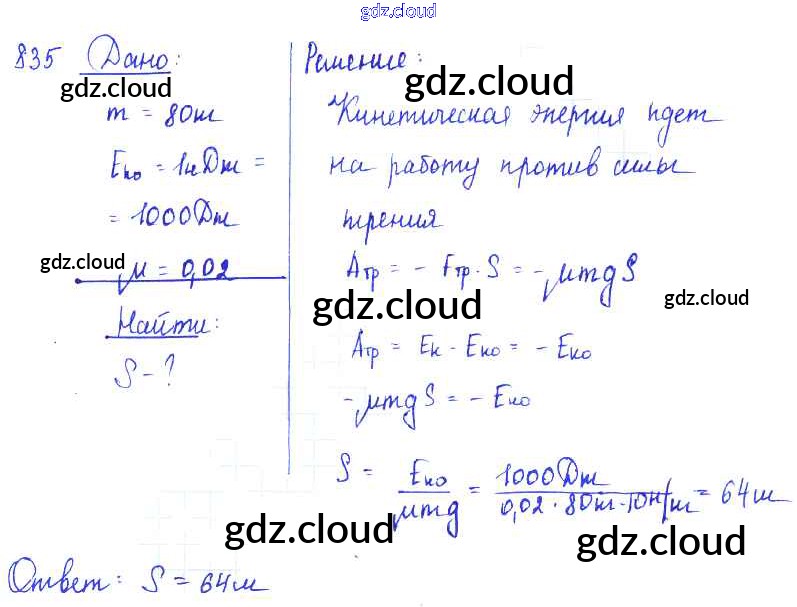 gdz.cloud
835 Дано:
gdz.cloud
m = 80кг
Eко = 1кДж =
= 1000Дж
gdz.cloud
μ = 0,02
Найти:
S - ?
Решение:
gdz.cloud
Кинетическая энергия идет
на работу против силы
трения
Aтр = - Fтр · S = -μmgS
gdz.cloud
gdz.cloud
Aтр = Eк - Eко = - Eко
-μmgS = - Eко
S = Eко / μmg = 1000Дж / 0,02 · 80кг · 10Н/кг = 64м
gdz.cloud
gdz.cloud
Ответ: S = 64м